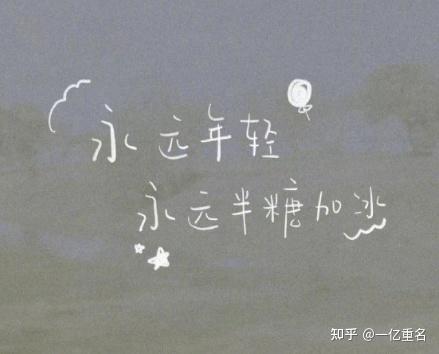 永远年轻
永远半糖加冰
知乎 @一亿重名